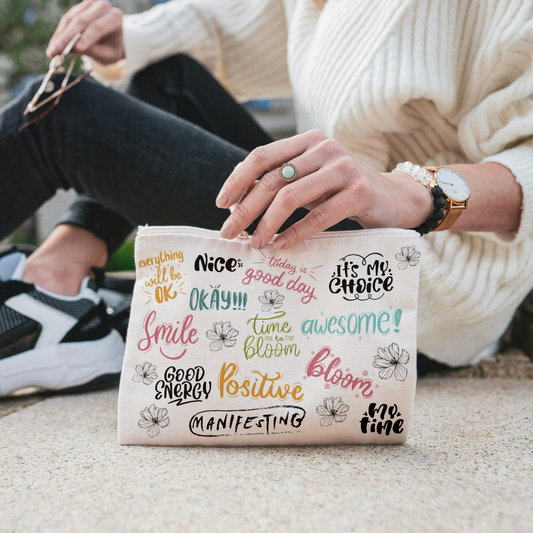 everything
will be
OK
Nice
today is
good day
It's My
CHOICE
OKAY!!!
Smile
time
to
bloom
awesome!
GOOD
ENERGY
Positive
Bloom
MANIFESTING
My
time